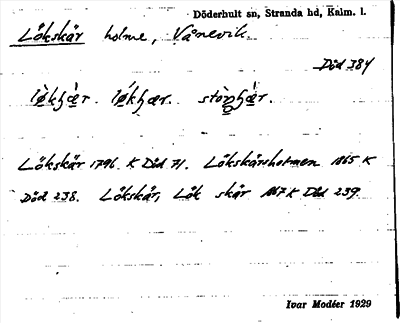 Döderhult sn, Stranda hd, Kalm. l.
Lökskär holme, Vånevik.
Död 384
Lökskär 1796 K Död 71. Lökskärsholmen 1865 K
Död 238. Lökskär, Lök skär 1867 K Död 239
Ivar Modéer 1929